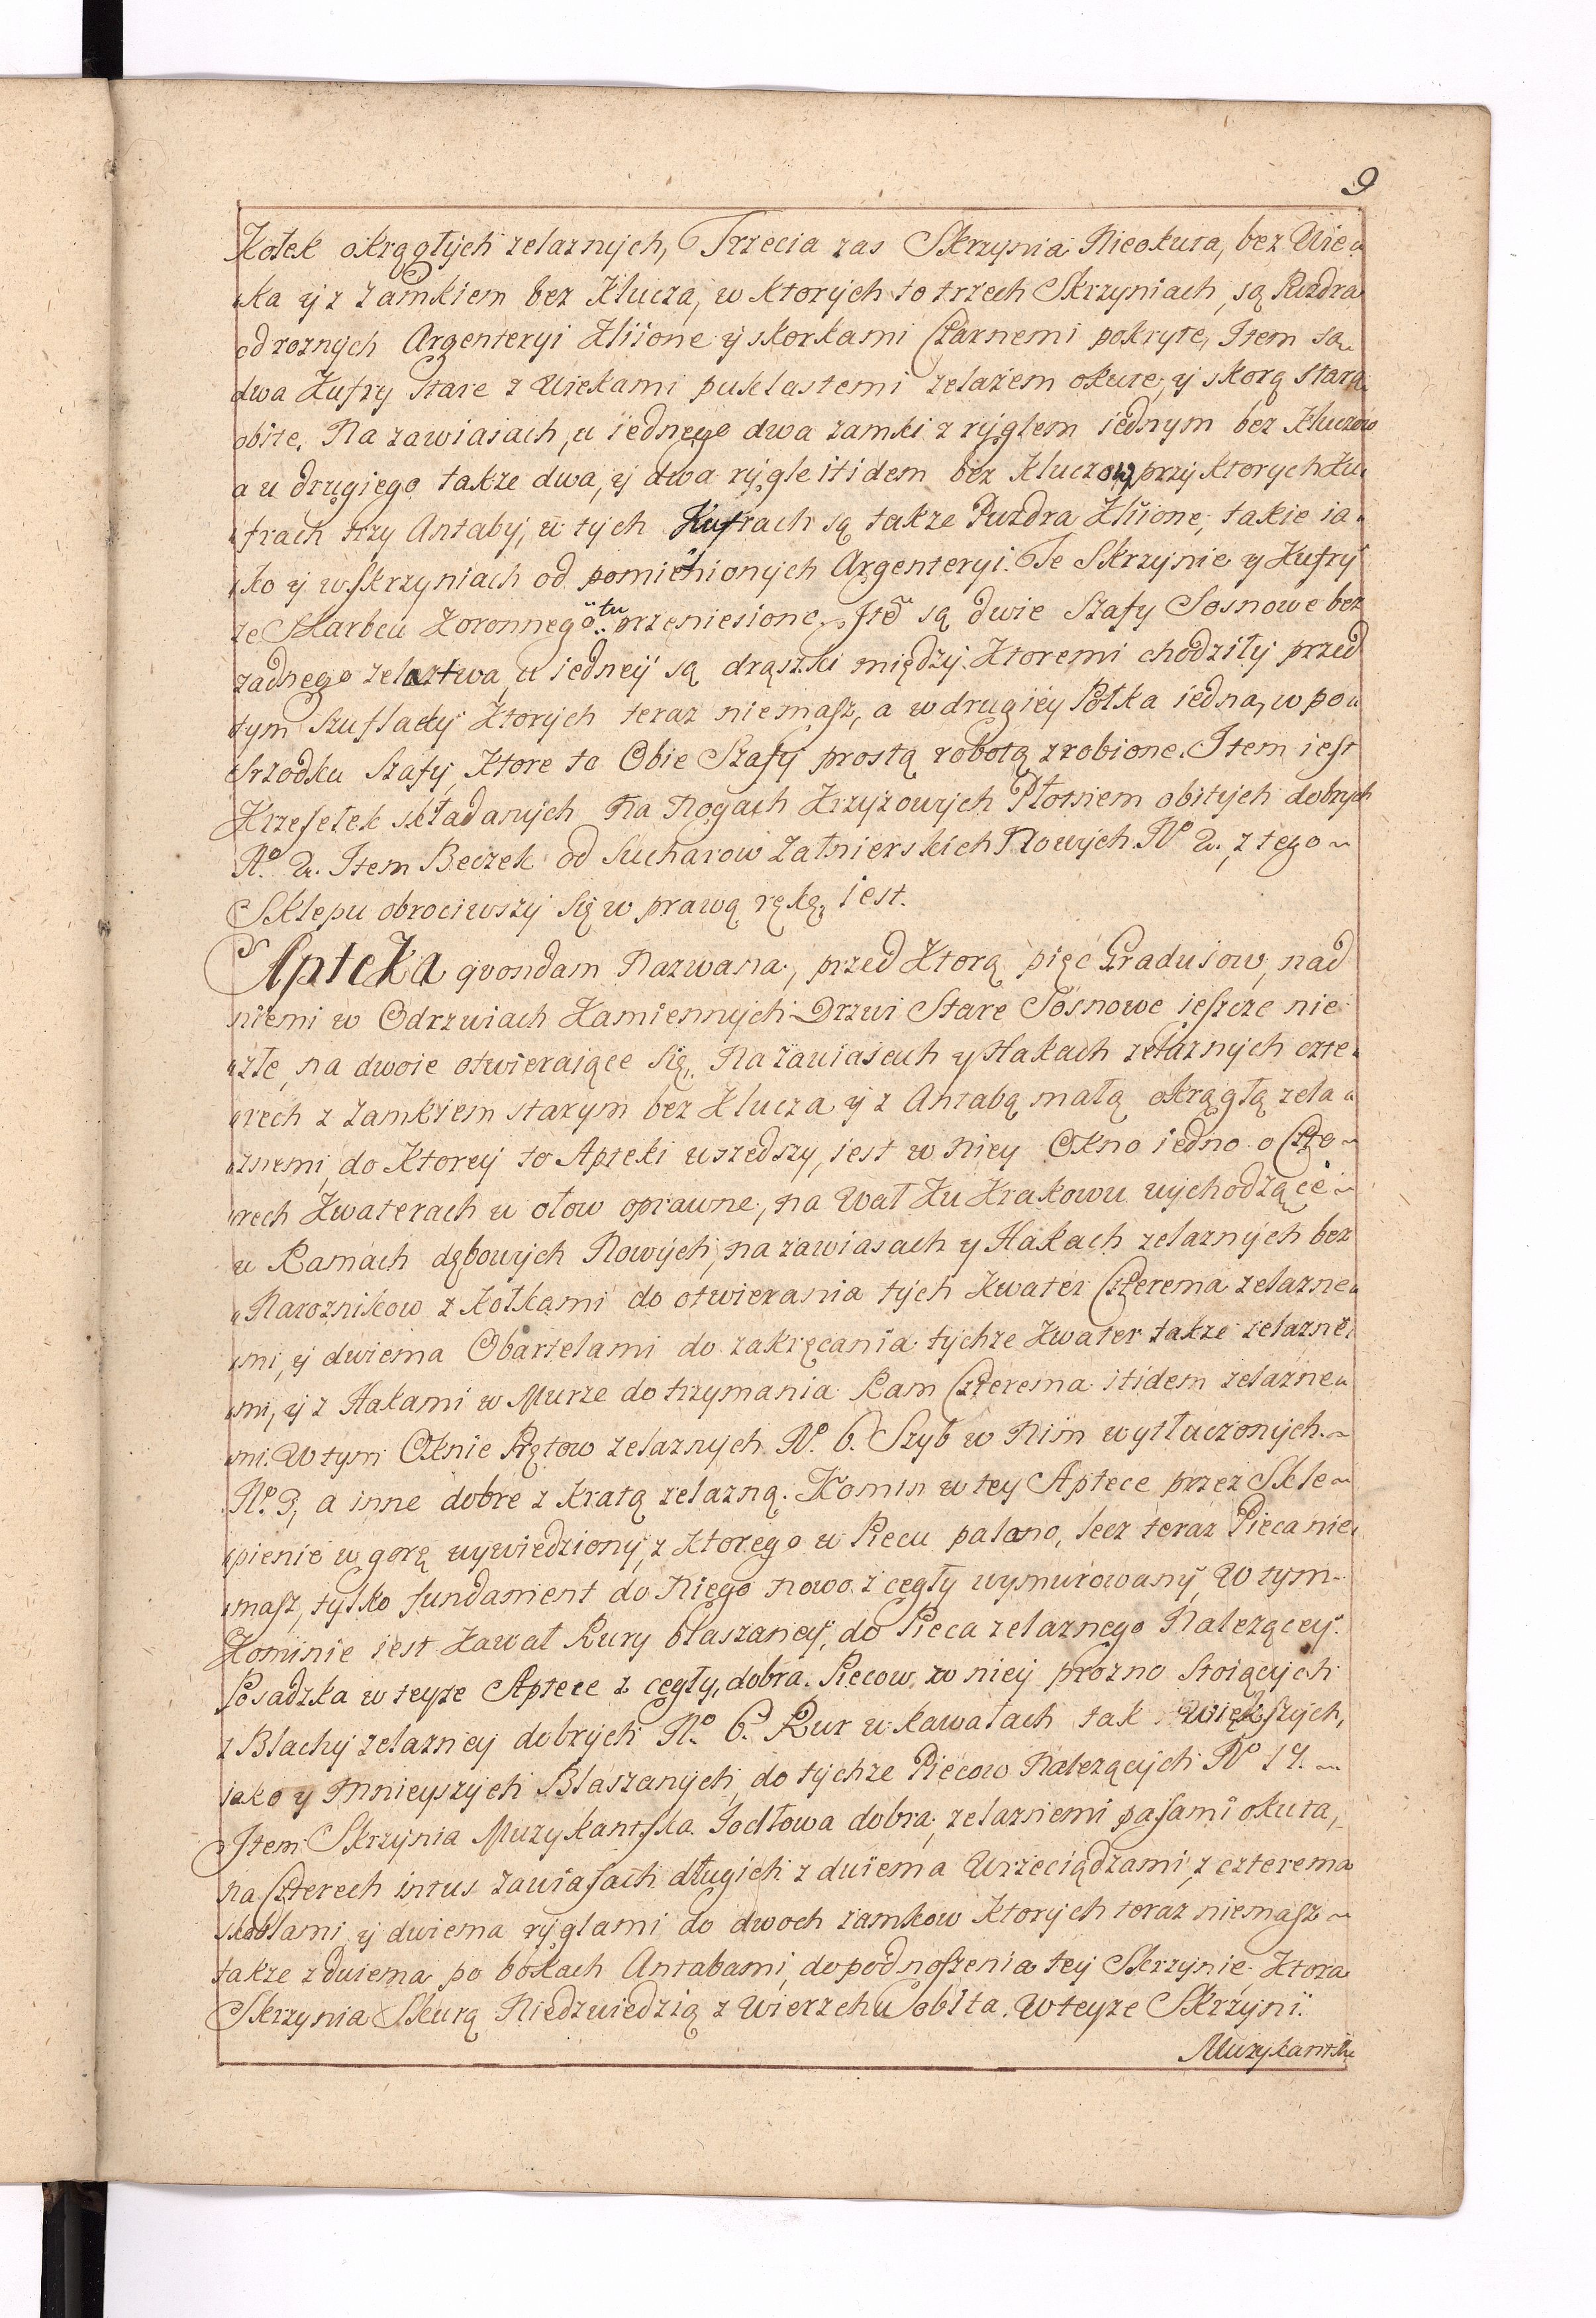 9
Kołek okrągłych zelaznych, Trzecia zas Skrzynia Nieokuta, bez Wie„
„ka y z zamkiem bez Klucza, w ktorych to trzech Skrzyniach, są Puzdra
od roznych Argenteryi Kliione y skorkami Czarnemi pokryte, Item są
dwa Kufry stare z Wiekami puklastemi zelazem okute, y skorą starą
obite, Na zawiasach, u iednego dwa zamki z ryglem iednym bez Kluczow
a u drugiego takze dwa, y dwa rygle itidem bez Kluczow, przy ktorych Ku„
„frach trzy Antaby, w tych Kufrach są takze Puzdra Kliione, takie ia„
„ko y w skrzyniach od pomienionych Argenteryi. Te Skrzynie y Kufry
ze Skarbcu Koronnego tu przeniesione. Ite są dwie Szafy Sosnowe bez
zadnego zelaztwa, w iedney są drązki między Ktoremi chodziły przed
tym szuflady Ktorych teraz niemasz, a w drugiey Połka iedna, w po„
„srzodku Szafy, Ktore to Obie Szafy prostą robotą zrobione. Item iest
Krzesełek składanych Na Nogach Krzyzowych Płotnem obitych dobrych
No. 2. Item Beczek od Sucharow Załnierskich Nowych No 2., z tego ~
Sklepu obrociwszy się w prawą rękę, iest.
Apteka qvondam Nazwana, przed Ktorą pięc Gradusow, nad
niemi w Odrzwiach Kamiennych Drzwi Stare Sosnowe ieszcze nie
„złe, na dwoie otwieraiące się, Na zawiasach y Hakach zelaznych czte„
„rech z zamkiem starym bez Klucza y z Antabą małą okrągłą zela„
„znemi, do Ktorey to Apteki wszedszy, iest w Niey Okno iedno o Czte~
„rech Kwaterach w ołow oprawne, na Wał Ku Krakowu wychodzące ~
w Ramach dębowych Nowych, na zawiasach y Hakach zelaznych bez
„Naroznikow z kołkami do otwierania tych Kwater Czterema zelazne„
„mi, y dwiema Obartelami do zakręcania tychze Kwater takze zelazne„
„mi, y z Hakami w Murze do trzymania Ram Czterema itidem zelazne„
„mi. W tym Oknie Prętow zelaznych No. 6. Szyb w Nim wytłuczonych. ~
No. 3, a inne dobre z Kratą zelazną. Komin w tey Aptece przez Skle~
„pienie w gorę wywiedziony, z Ktorego w Piecu palono, lecz teraz Pieca nie„
„masz, tylko fundament do Niego nowo z cegły wymurowany, W tym
Kominie iest Kawał Rury blaszaney, do Pieca zelaznego Nalezącey.
Posadzka w teyze Aptece z cegły, dobra. Piecow w niey prozno stoiących
z Blachy zelazney dobrych No. 6. Rur w kawałach tak Większych,
iako y Mnieyszych Blaszanych, do tychze Piecow Nalezących No 17. ~
Item Skrzynia Muzykantska Jodłowa dobra, zelaznemi pasami okuta,
na Czterech intus zawiasach długich z dwiema Wrzeciądzami, z czterema
skoblami, y dwiema ryglami do dwoch zamkow Ktorych teraz niemasz ~
takze z dwiema po bokach Antabami, do podnoszenia tey Skrzynie. Ktora
Skrzynia Skurą Niedzwiedzią z Wierzchu obita. W teyze Skrzyni.
Muzykantsk